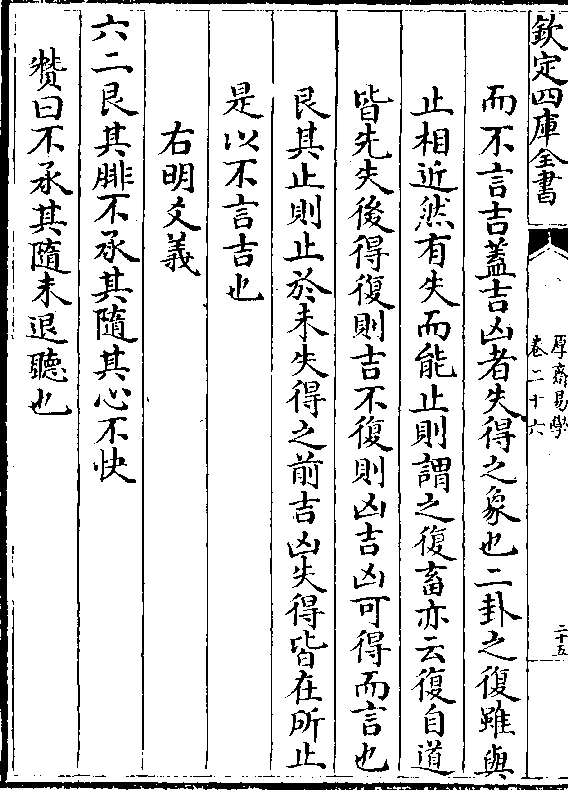 欽定四庫全書
厚齋易學
卷二十六
二十五
而不言吉蓋吉凶者失得之象也二卦之復雖與
止相近然有失而能止則謂之復畜亦云復自道
皆先失後得復則吉不復則凶吉凶可得而言也
艮其止則止於未失得之前吉凶失得皆在所止
是以不言吉也
右明爻義
六二艮其腓不承其隨其心不快
贊曰不承其隨未退聽也